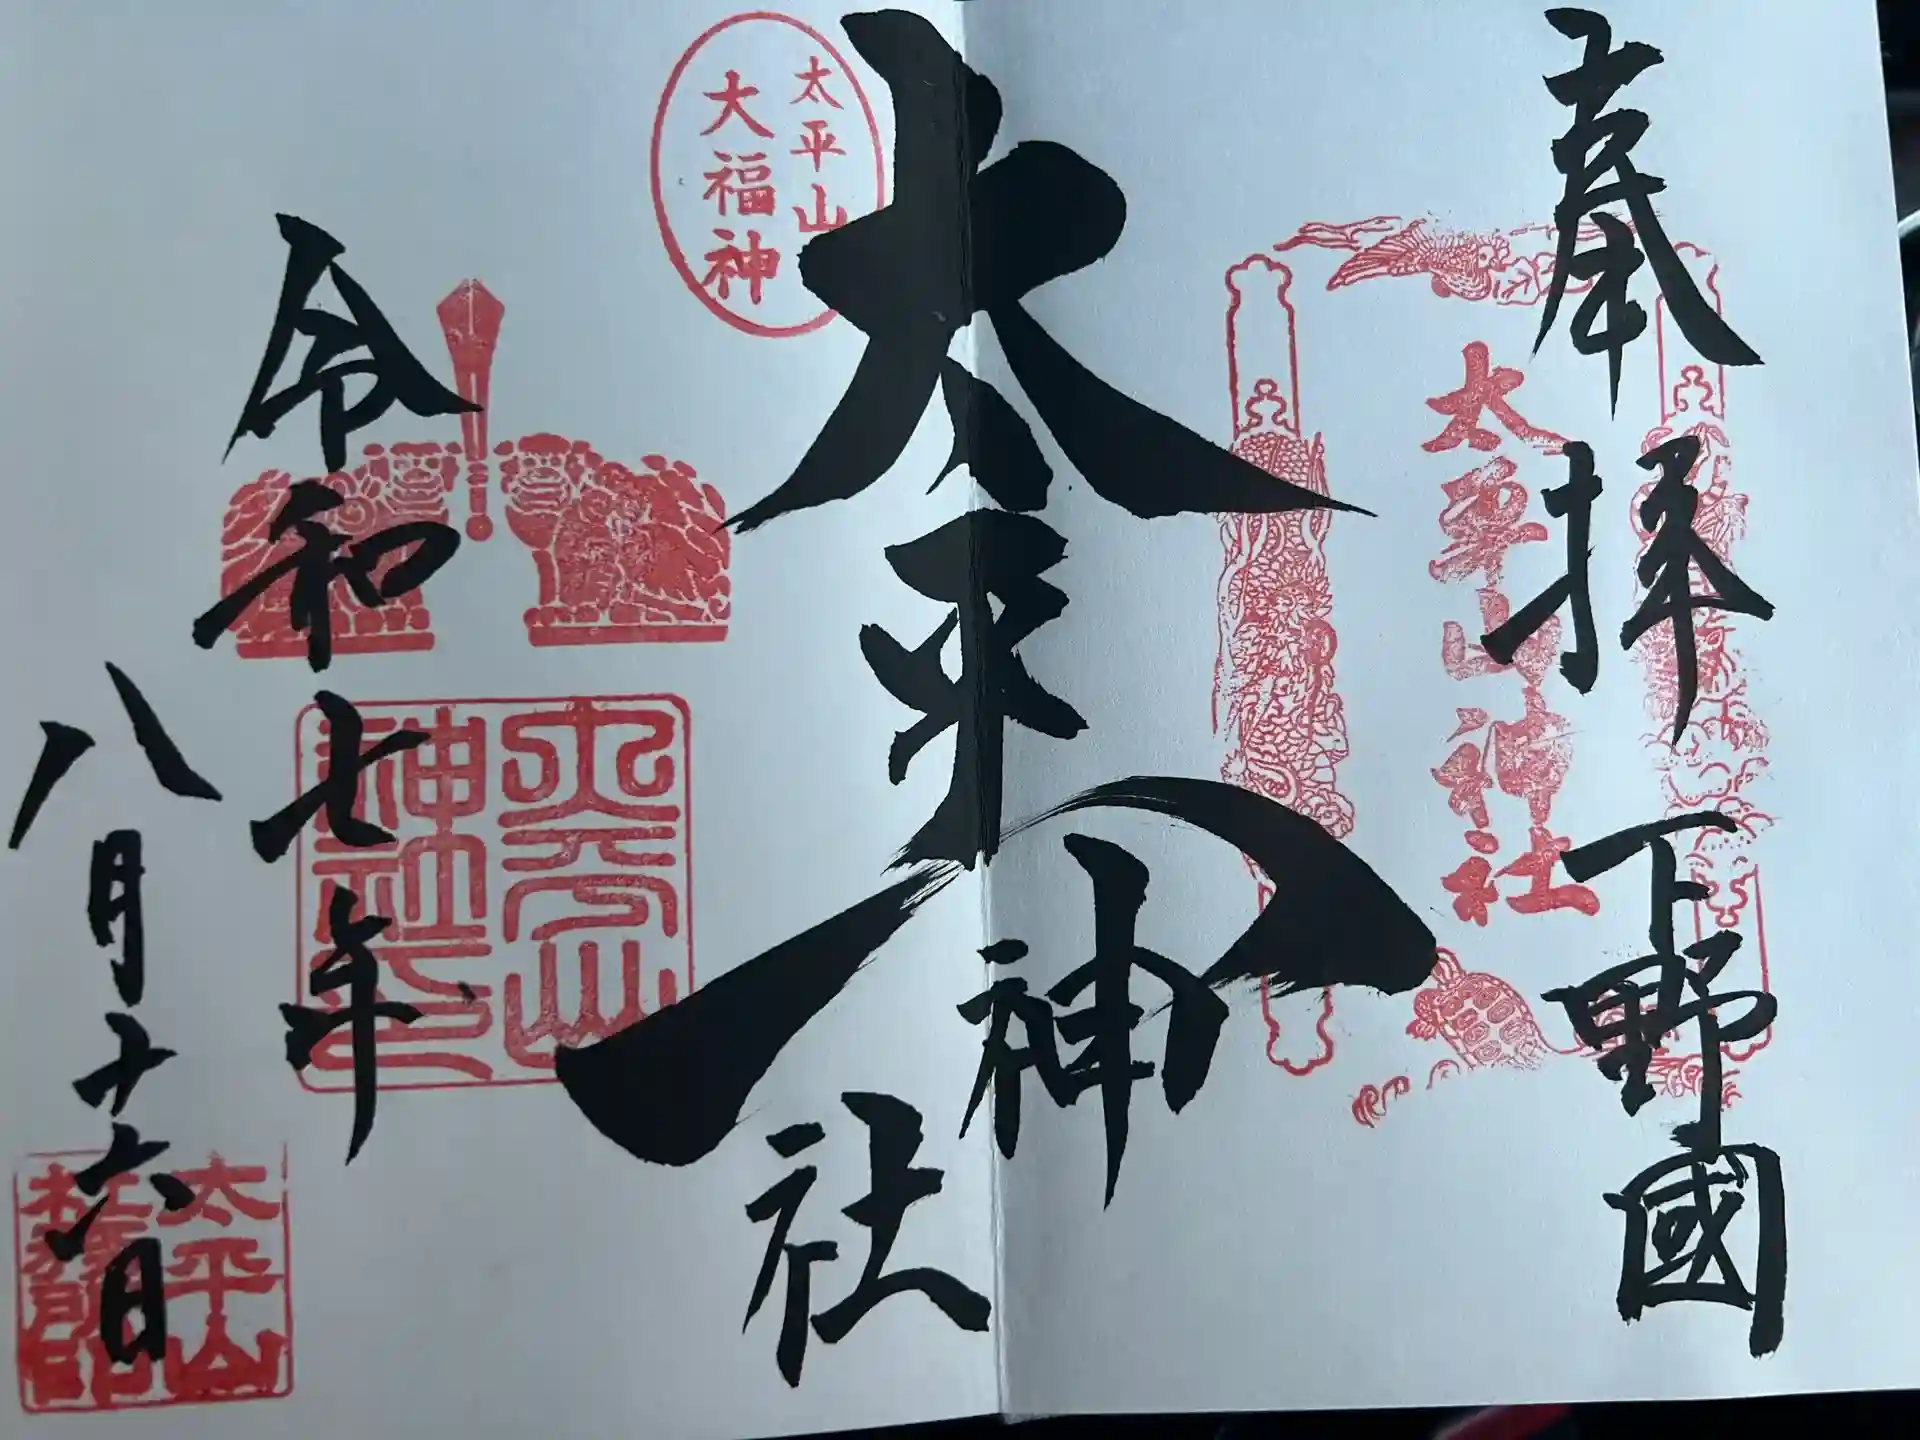 奉拝 下野國
太平山神社
太平山神社
太平山
大福神
太平山
神社之印
令和七年
八月十六日
太平山
社務所印